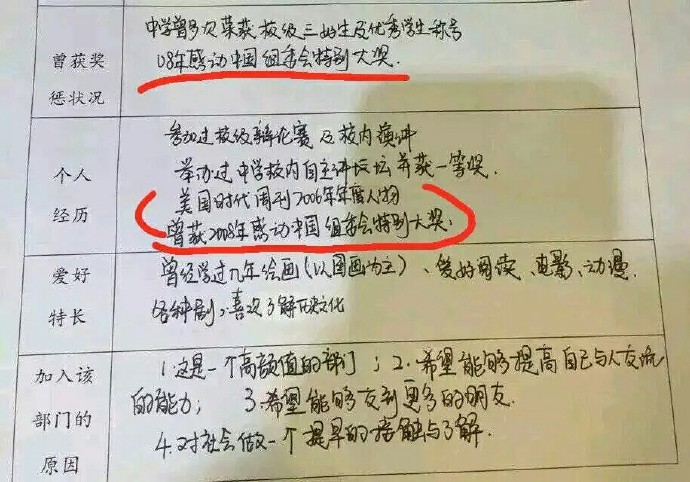 曾获奖
惩状况
中学曾多次荣获校级三好生及优秀学生称号
08年感动中国组委会特别大奖.
个人
经历
参加过校级辩论赛及校内演讲
举办过中学校内自主讲坛并获一等奖.
美国时代周刊2006年年度人物
曾获2008年感动中国组委会特别大奖.
爱好
特长
曾经学过九年绘画(以国画为主)、爱好阅读、电影、动漫、
各种剧,喜欢了解历史文化
加入该
部门的
原因
1.这是一个高颜值的部门;2.希望能够提高自己与人交流
的能力; 3.希望能够交到更多的朋友.
4.对社会做一个提早的接触与了解.